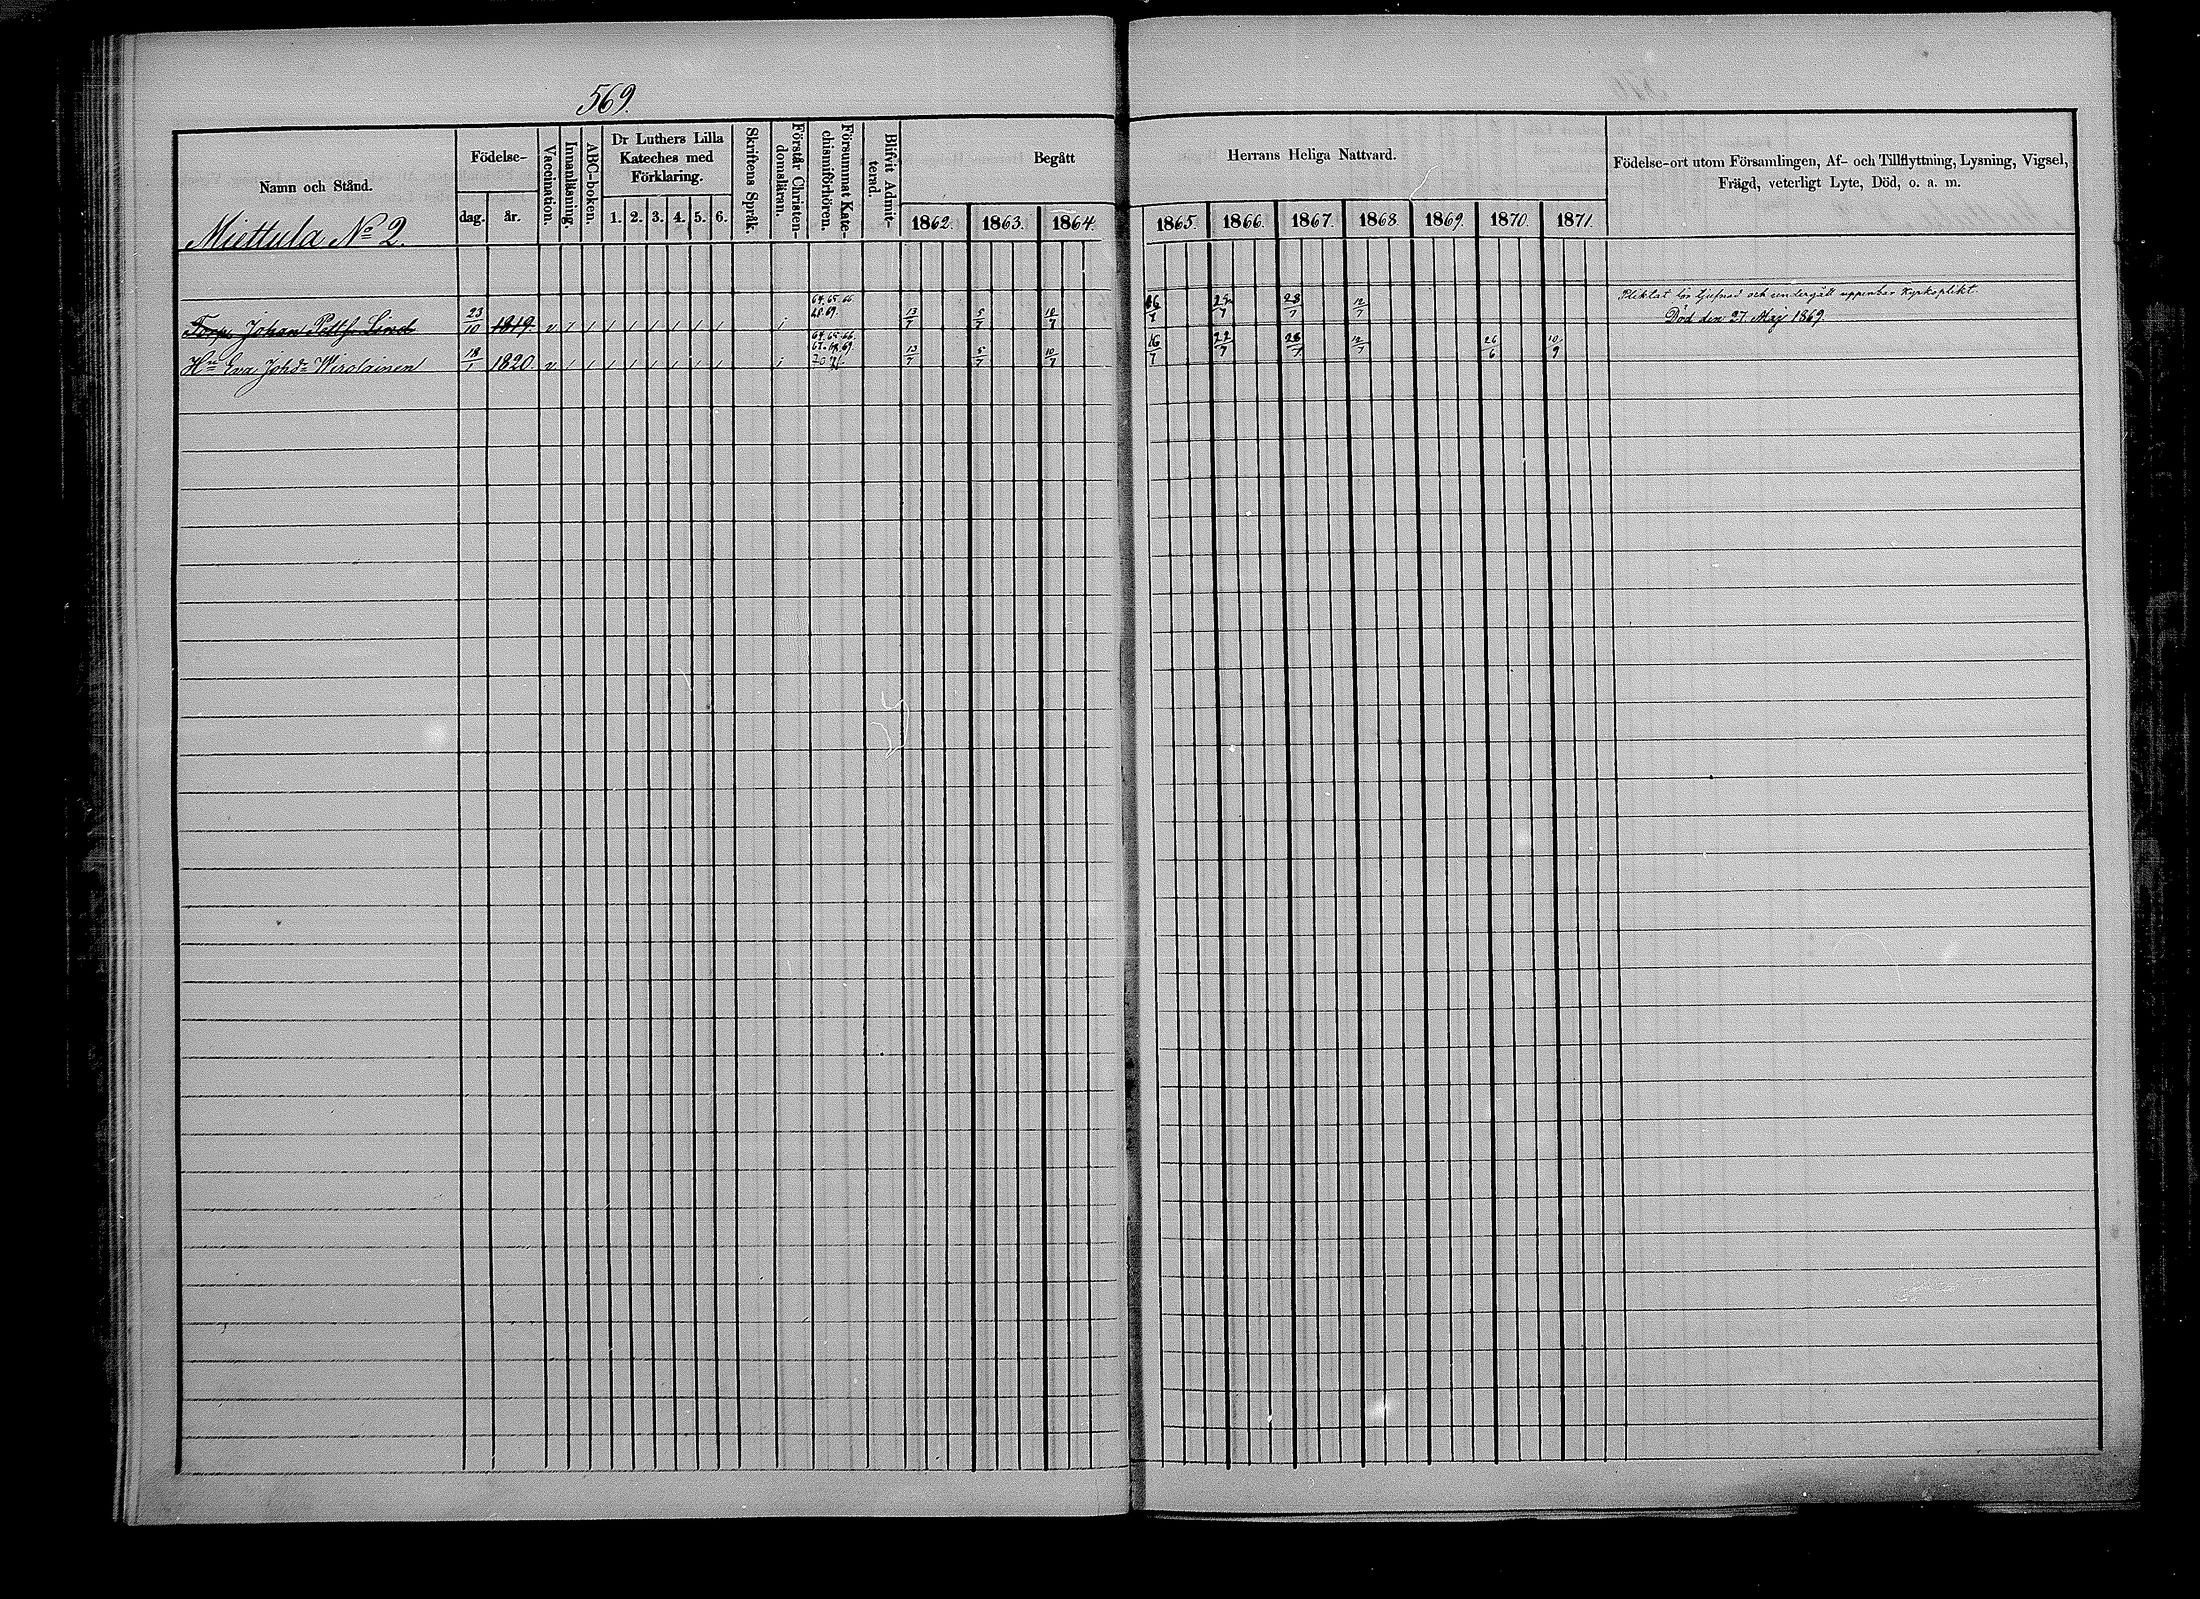 569.
Namn och Stånd.
Miettula No 2.
Födelse-
dag. år.
Vaccination.
Innanläsning.
ABC-boken.
Dr Luthers Lilla
Kateches med
Förklaring.
1. 2. 3. 4. 5. 6.
Skriftens Språk.
Förstår Christen-
domsläran.
Försummat Kate-
chismiförhören.
Blifvit Admit-
terad.
Begått
1862. 1863. 1864.
Herrans Heliga Nattvard.
1865. 1866. 1867. 1868. 1869. 1870. 1871.
Födelse-ort utom Församlingen, Af- och Tillflyttning, Lysning, Vigsel,
Frägd, veterligt Lyte, Död, o. a. m.
64. 65. 66.
Torp. Johan Pett:s Lind 23/10 1819. v / / / / / / / / / 68. 69. 13/7 5/7 10/7 16/7 28/7 12/7
Pliktat för tjufnad och undergått uppenbar Kyrkoplikt
Död den 27. Maj 1869.
64. 65. 66.
67. 68. 69.
Hn Eva Johdr Wirolainen 18/1 1820. v / / / / / / / / / 70. 71. 13/7 5/7 10/7 16/7 22/7 28/7 12/7 26/6 10/9